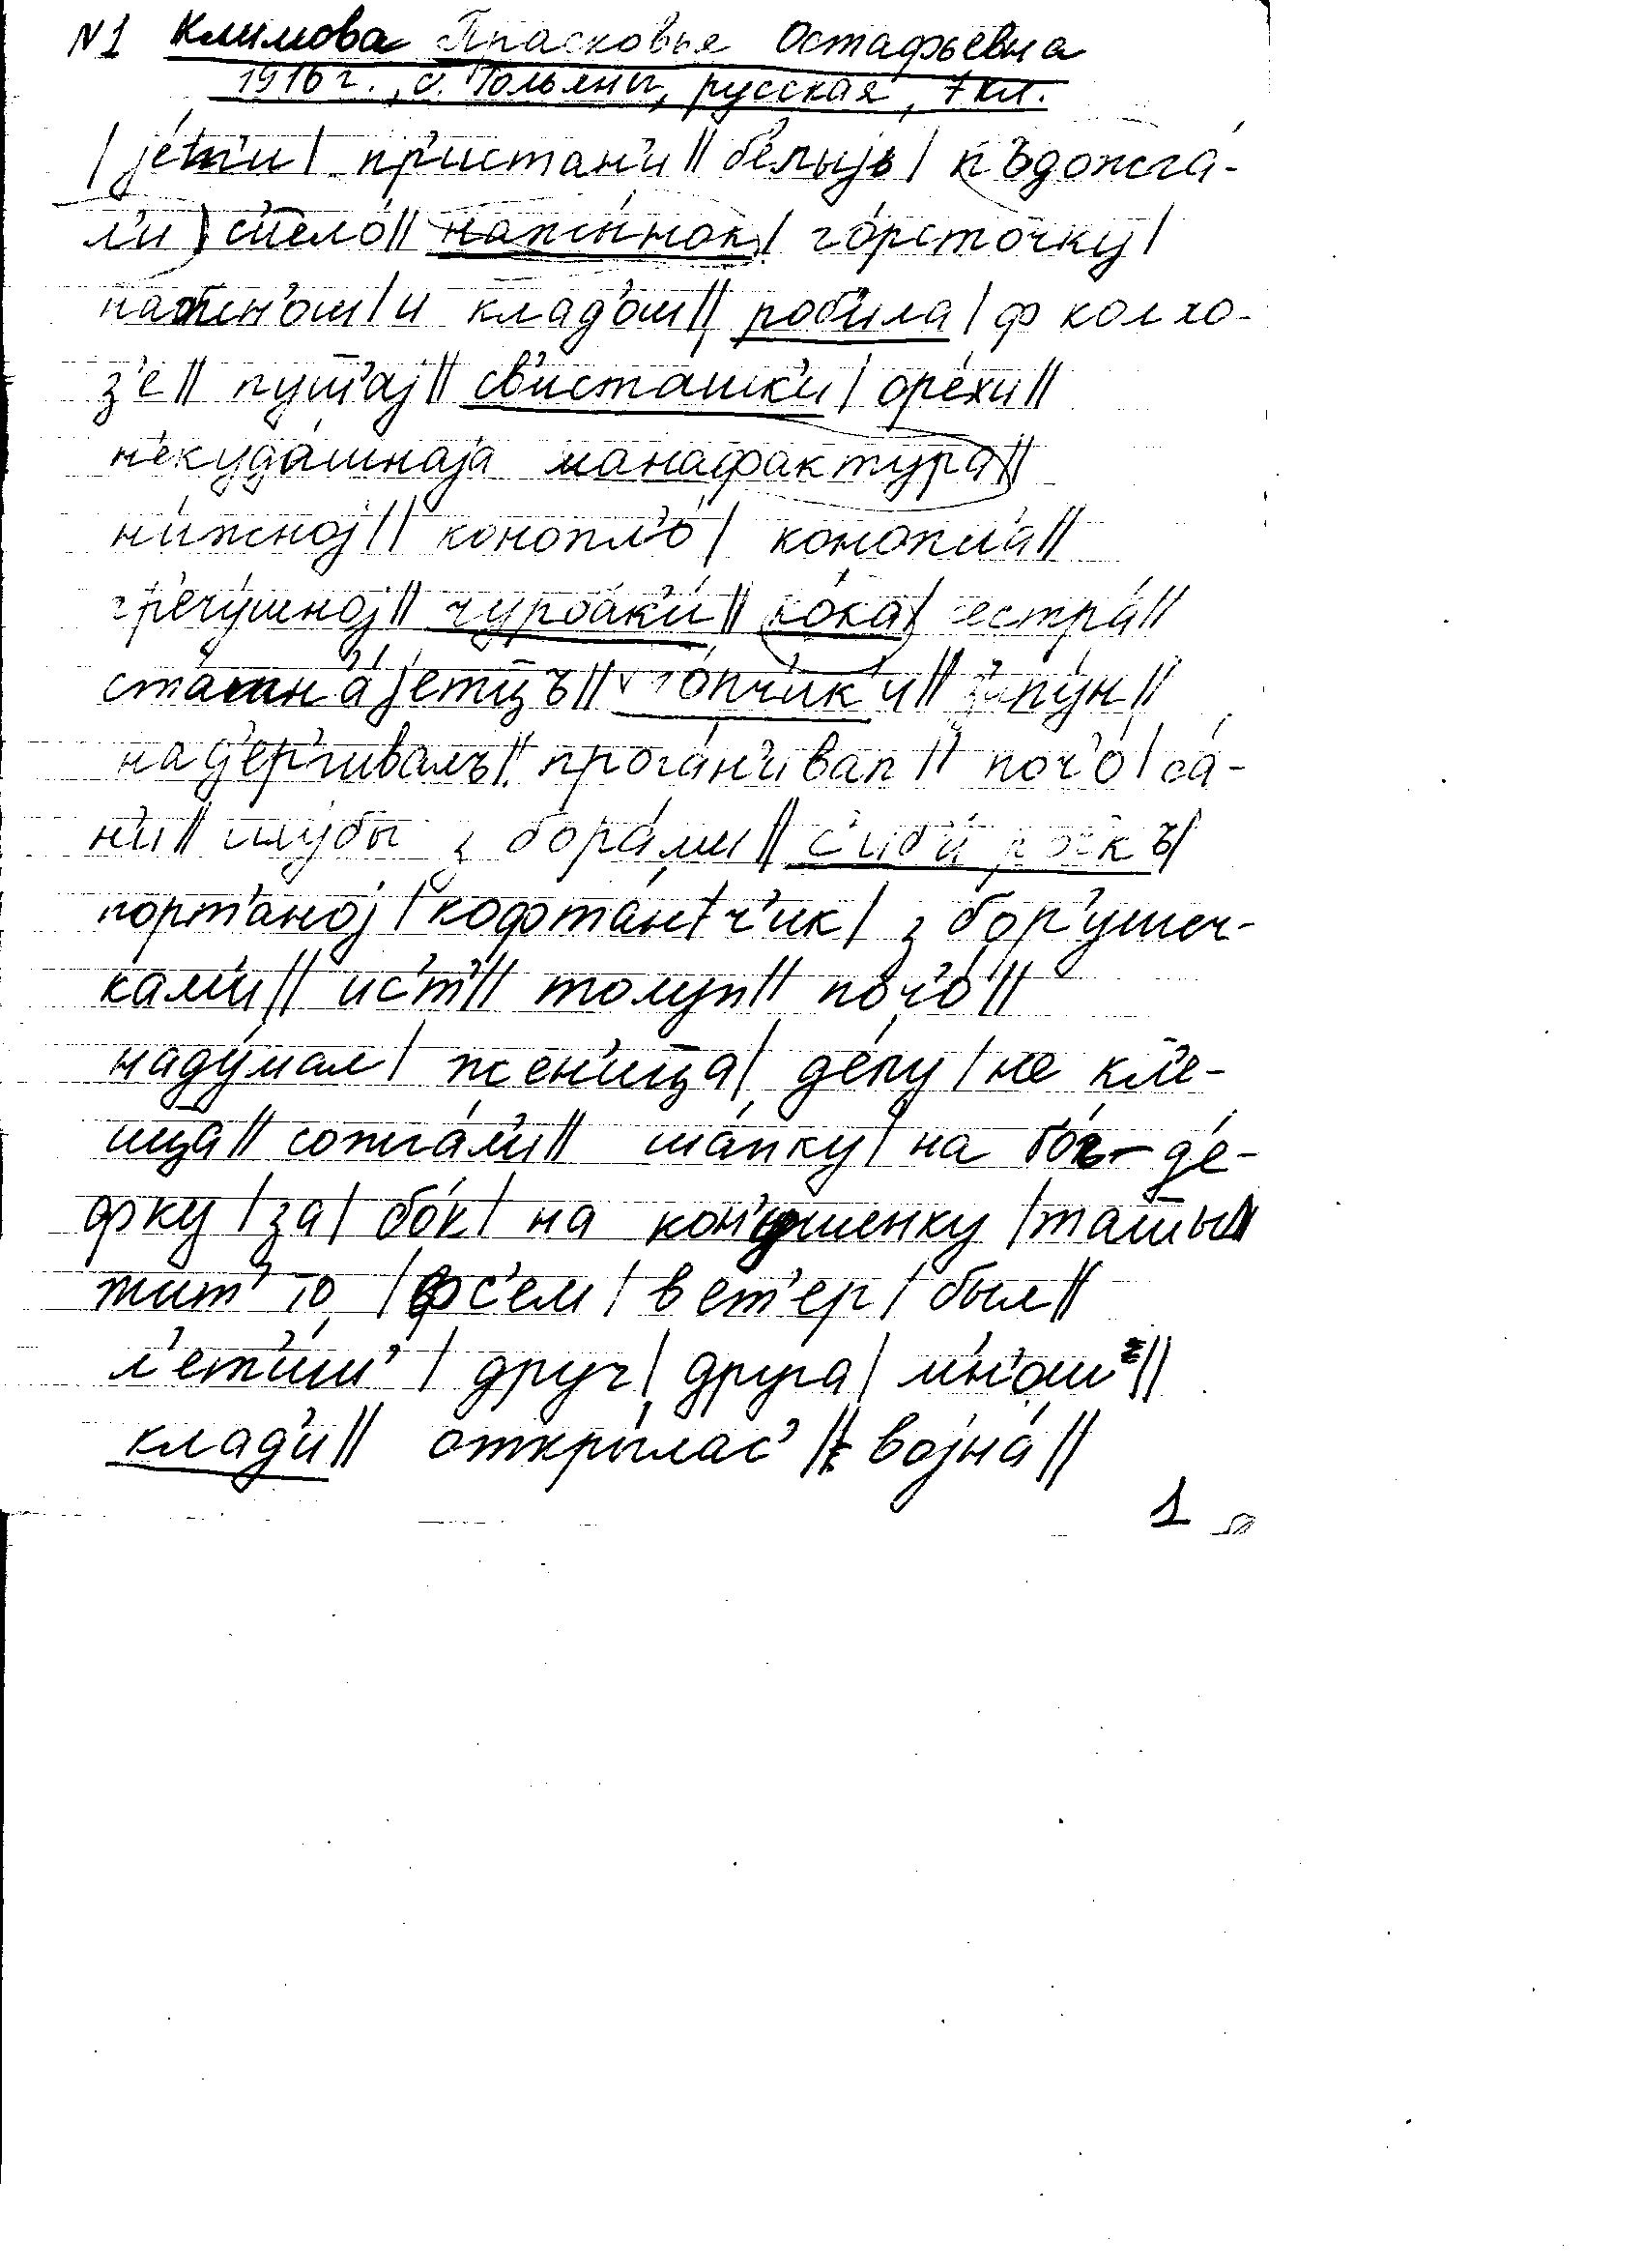 N1 Климова Прасковья Остафьевна
1916 г., с. Гольяны, русская, 7 кл.
| jе́т'и | пр'истан'и || бе́лыjь | пъдожга́-
л'и | с'ело́ || нажи́нок | го́рсточку |
нажн'о́ш | и клад'о́ш || роб'ила | ф колхо-
з'е || пушта́j || св'исташк'и | оре́хи ||
н'екуда́шнаjа манафактура ||
ни́жноj || конопл'о́ | конопл'а́ ||
гр'ечу́шноj || чурбак'и́ || ко́ка | сестра́ ||
jетцъ || то́пч'ик'и || зипу́н ||
над'е́рг'ивалъ || прога́н'ивал || поч'о́ | са́-
н'и || шу́бы з бора́ми ||
порт'аноj | кофта́нч'ик | з бор'ушеч-
кам'и || ис'т' || толуп || поч'о́ ||
наду́мал | жен'ица | де́лу | не кл'е-
ица || сожга́л'и || ша́пку | на де́-
фку | за | бо́к | на кон'у́шенку |
жит'jо | фс'ем | в'ет'ер | был ||
л'ет'и́ш' | друг | друга | мн'ош ||
клад'и || откры́лас' || воjна́ ||
1